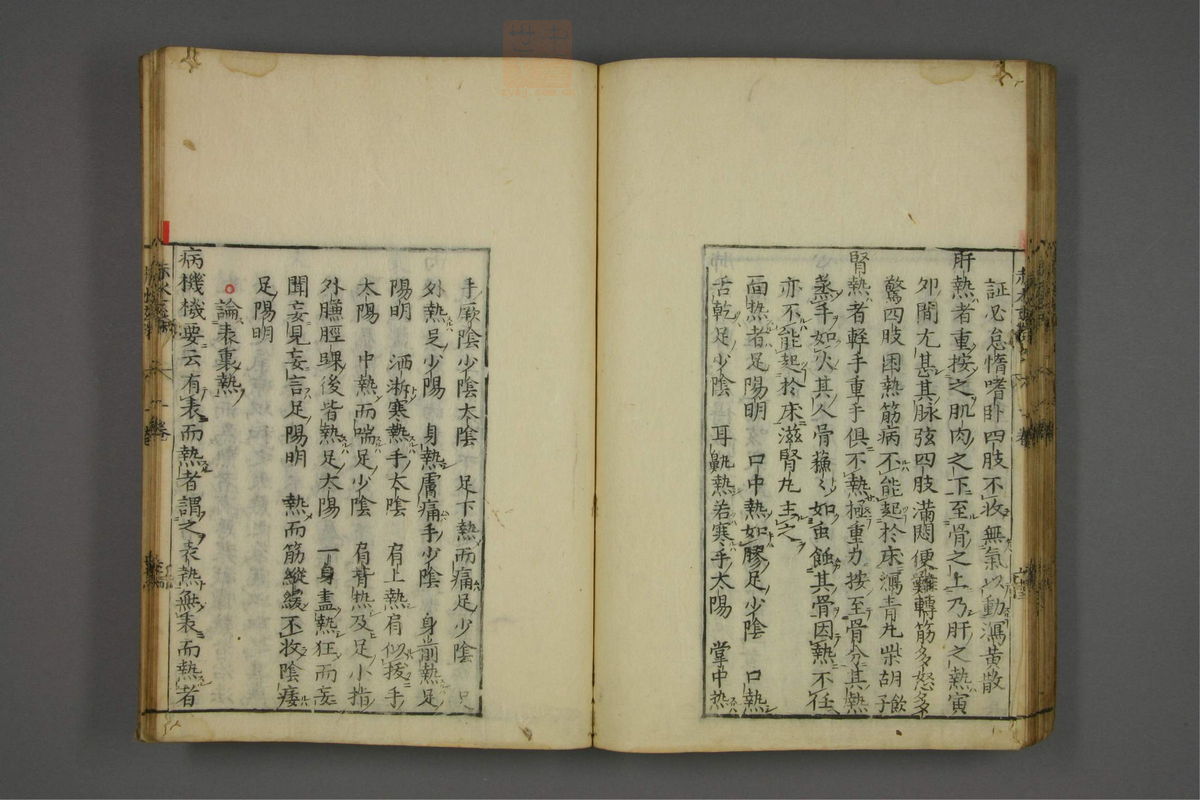 証必怠惰嗜卧四肢不收無氣以動瀉黄散
肝熱者重按之肌肉之下至骨之上乃肝之熱寅
夘間尤甚其脉弦四肢滿悶便難轉筋多怒多
驚四肢困熱筋病不能起於床瀉青丸柴胡飲子
腎熱者輕手重手俱不熱極重力按至骨分其熱
蒸手如火其人骨穌〻如虫蝕其骨因熱不任
亦不能起於床滋腎丸主之
面熱者足陽明　口中熱如膠足少陰　口熱
舌乾足少陰　耳聾熱若寒手太陽　掌中热
手厥陰少陰太陰　足下熱而痛足少陰　足
外熱足少陽　身熱膚痛手少陰　身前熱足
陽明　洒淅寒熱手太陰　肩上熱肩似拔手
太陽　中熱而喘足少陰　肩背热及足小指
外臁脛踝後皆熱足太陽　一身盡熱狂而妄
聞妄見妄言足陽明　熱而筋縱緩不收陰痿
足陽明
論表裏熱
病機機要云有表而熱者謂之表熱無表而熱者